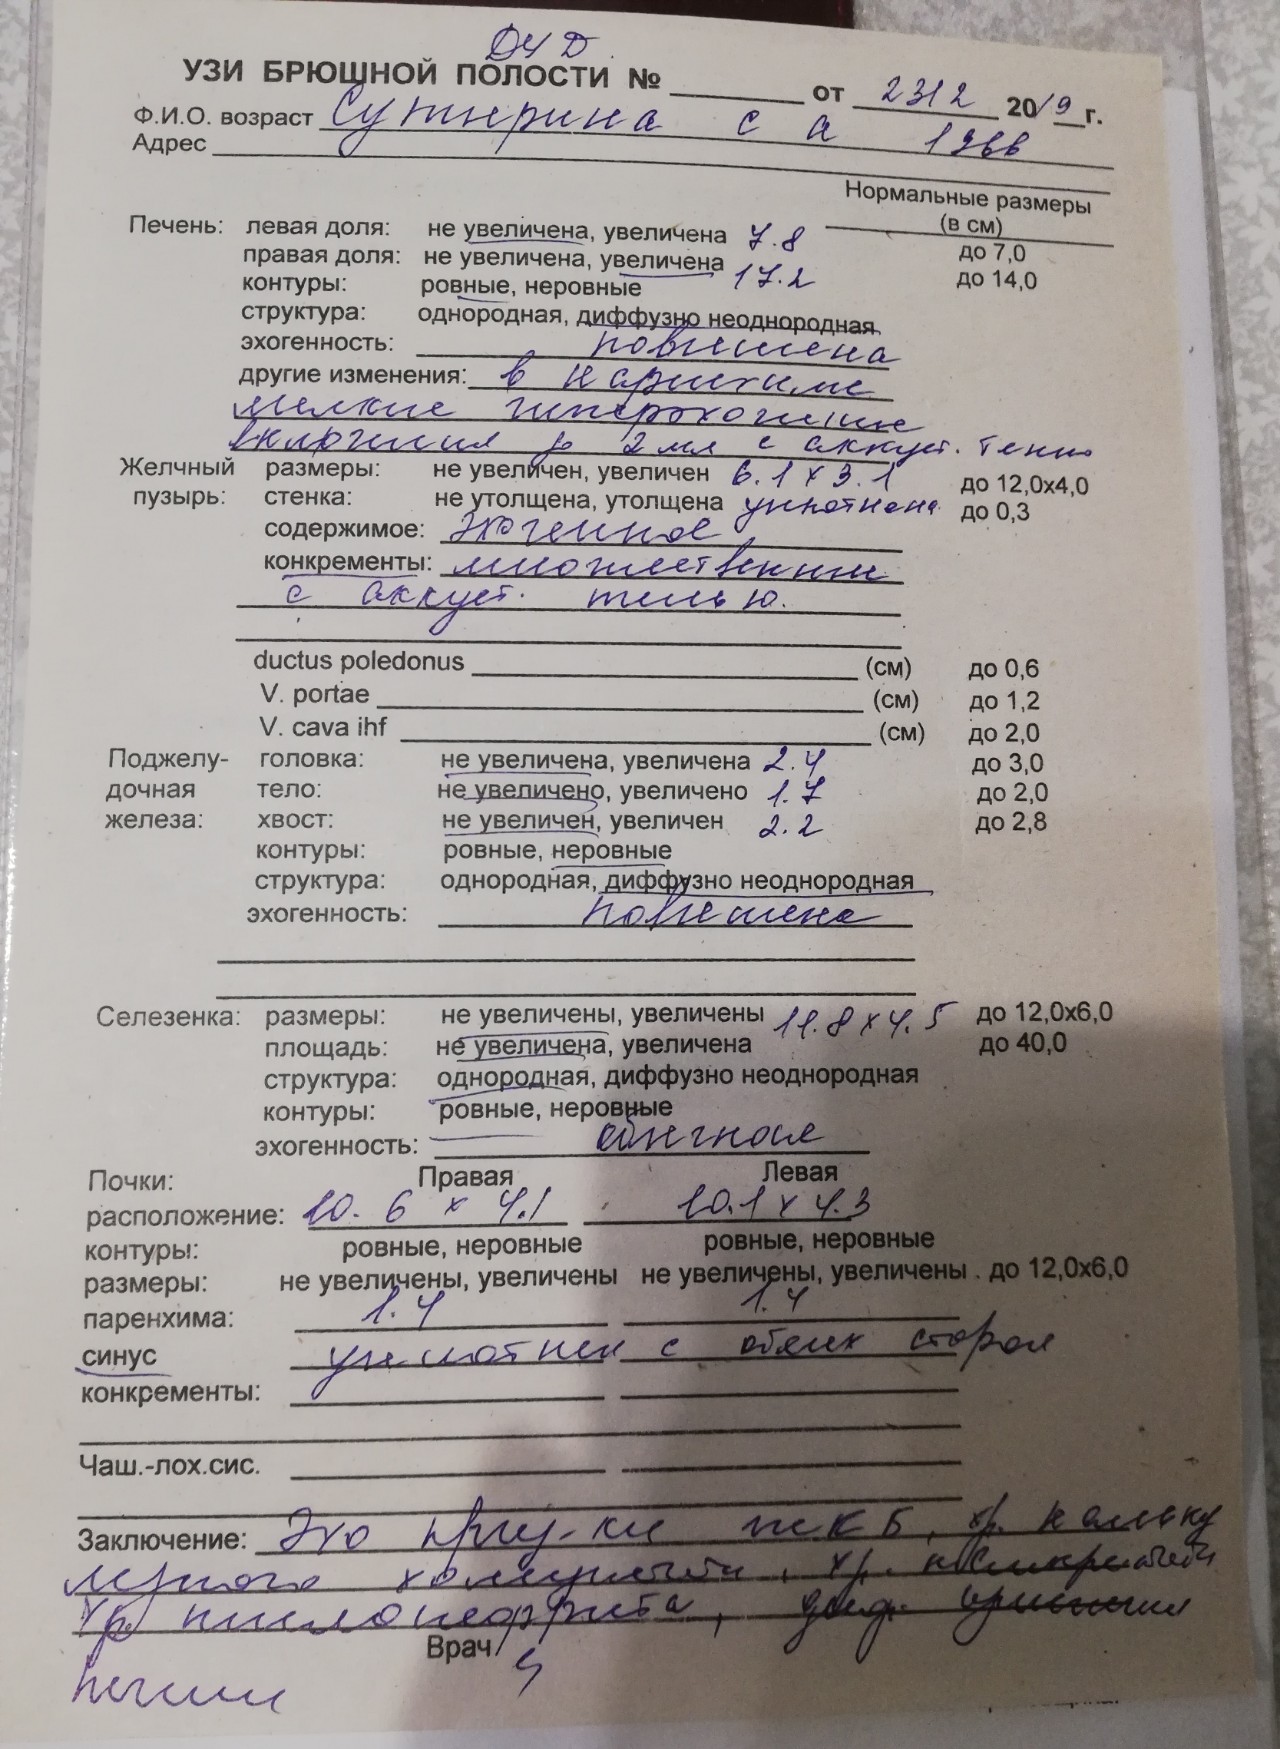 ДУД
УЗИ БРЮШНОЙ ПОЛОСТИ № от 2312 2019 г.
Ф.И.О. возраст с а 1966
Адрес
Нормальные размеры
(в см)
Печень: левая доля: не увеличена, увеличена 7.8 до 7,0
правая доля: не увеличена, увеличена 17.2 до 14,0
контуры: ровные, неровные
структура: однородная, диффузно неоднородная
эхогенность: повышена
другие изменения: в паренхиме
мелкие гиперэхогенные
включения до 2 мм с аккуст. тенью
Желчный размеры: не увеличен, увеличен 6.1 х 3.1 до 12,0х4,0
пузырь: стенка: не утолщена, утолщена уплотнена до 0,3
содержимое: эхогенное
конкременты: множественные
с аккуст. тенью.
ductus poledonus (см) до 0,6
V. portae (см) до 1,2
V. cava ihf (см) до 2,0
Поджелу- головка: не увеличена, увеличена 2.4 до 3,0
дочная тело: не увеличено, увеличено 1.7 до 2,0
железа: хвост: не увеличен, увеличен 2.2 до 2,8
контуры: ровные, неровные
структура: однородная, диффузно неоднородная
эхогенность: повышена
Селезенка: размеры: не увеличены, увеличены 11.8 х 4.5 до 12,0х6,0
площадь: не увеличена, увеличена до 40,0
структура: однородная, диффузно неоднородная
контуры: ровные, неровные
эхогенность: обычная
Почки: Правая Левая
расположение: 10.6 х 4.1 10.1 х 4.3
контуры: ровные, неровные ровные, неровные
размеры: не увеличены, увеличены не увеличены, увеличены. до 12,0х6,0
паренхима: 1.4 1.4
синус уплотнен с обеих сторон
конкременты:
Чаш.-лох.сис.
Заключение: Эхо приз-ки ЖКБ, хр. кальку
лезного холецистита, хр. панкреатита
хр. пиелонефрита, дифф. изменения
Врач
печени